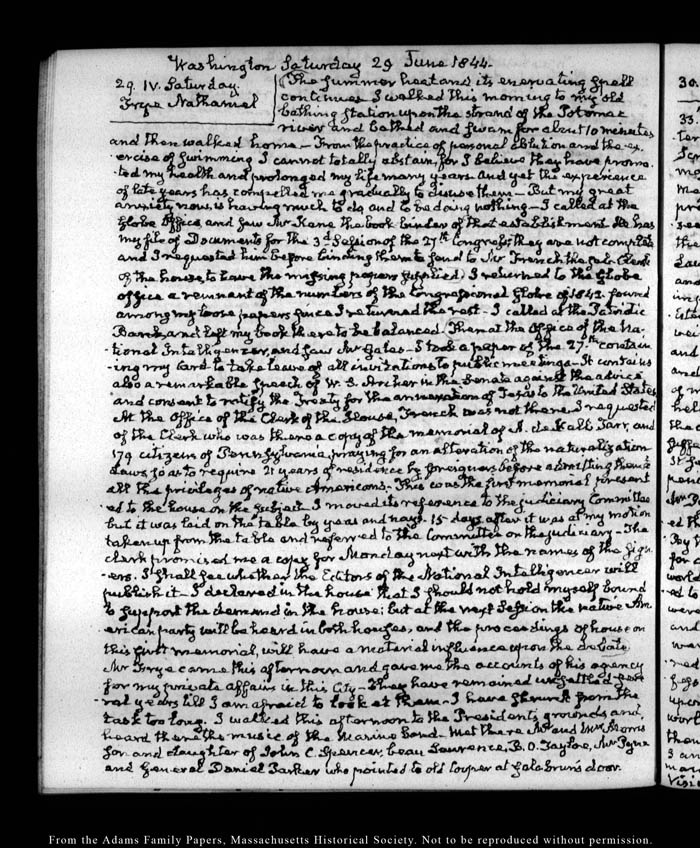 Washington Saturday 29 June 1844.
29. IV. Saturday
Frye Nathaniel
The Summer heat and its enervating spell
continues I walked this morning to my old
bathing station upon the strand of the Potomac
river and bathed and swam for about 10 minutes
and then walked home - From the practice of personal ablution and the ex-
-ercise of swimming I cannot totally abstain, for I believe they have promo-
ted my health and prolonged my life many years and yet the experience
of late years has compelled me gradually to disuse them - But my great
anxiety now is having much to do and to be doing nothing - I called at the
Globe Office, and saw Mr Kane the book binder of that establishment He has
my file of Documents for the 3d Session of the 27th Congress they are not complete
and I requested him before binding them to send to Mr French the Clerk
of the house, to have the missing papers supplied I returned to the Globe
office a remnant of the numbers of the Congressional Globe of 1842 found
among my loose papers since I returned the rest - I called at the Patriotic
Bank and left my book there to be balanced. Then at the Office of the Na-
tional Intelligencer, and saw Mr Gales - I took a paper of the 27th contain
-ing my Card to take leave of all invitations to public meetings - It contains
also a remarkable speech of W. S. Archer in the Senate against the advice
and consent to ratify the Treaty for the annexation of Texas to the United States
At the Office of the Clerk of the House, French was not there I requested
of the Clerk who was there a copy of the memorial of A. De Kalb Tarr, and
179 citizens of Pennsylvania, praying for an alteration of the naturalization
Laws so as to require 21 years of residence by foreigners before admitting them to
all the privileges of native Americans. This was the first memorial present
-ed to the house on the subject. I moved its reference to the judiciary Committee
but it was laid on the table by yeas and nays. 15 days after it was at my motion
taken up from the table and referred to the Committee on the judiciary - The
clerk promised me a copy for Monday next with the names of the sign-
-ers. I shall see whether the Editors of the National Intelligencer will
publish it. I declared in the house that I should not hold myself bound
to support the demand in the house; but at the next Session the native Am-
erican party will be heard in both houses, and the proceedings of house on
this first memorial, will have a material influence upon the debate
Mr Frye came this afternoon and gave me the accounts of his agency
for my private affairs in this City - They have remained unsettled seve-
ral years till I am afraid to look at them - I have shrunk from the
task too long. I walked this afternoon to the President's grounds and
heard there the music of the Marine band. Met there Mr and Mrs Morris
son and daughter of John C. Spencer, beau Laurence, B. O. Tayloe, Mr Pyne
and General Daniel Parker who pointed to old Cooper at Galabrun's door.
30.
From the Adams Family Papers, Massachusetts Historical Society. Not to be reproduced without permission.